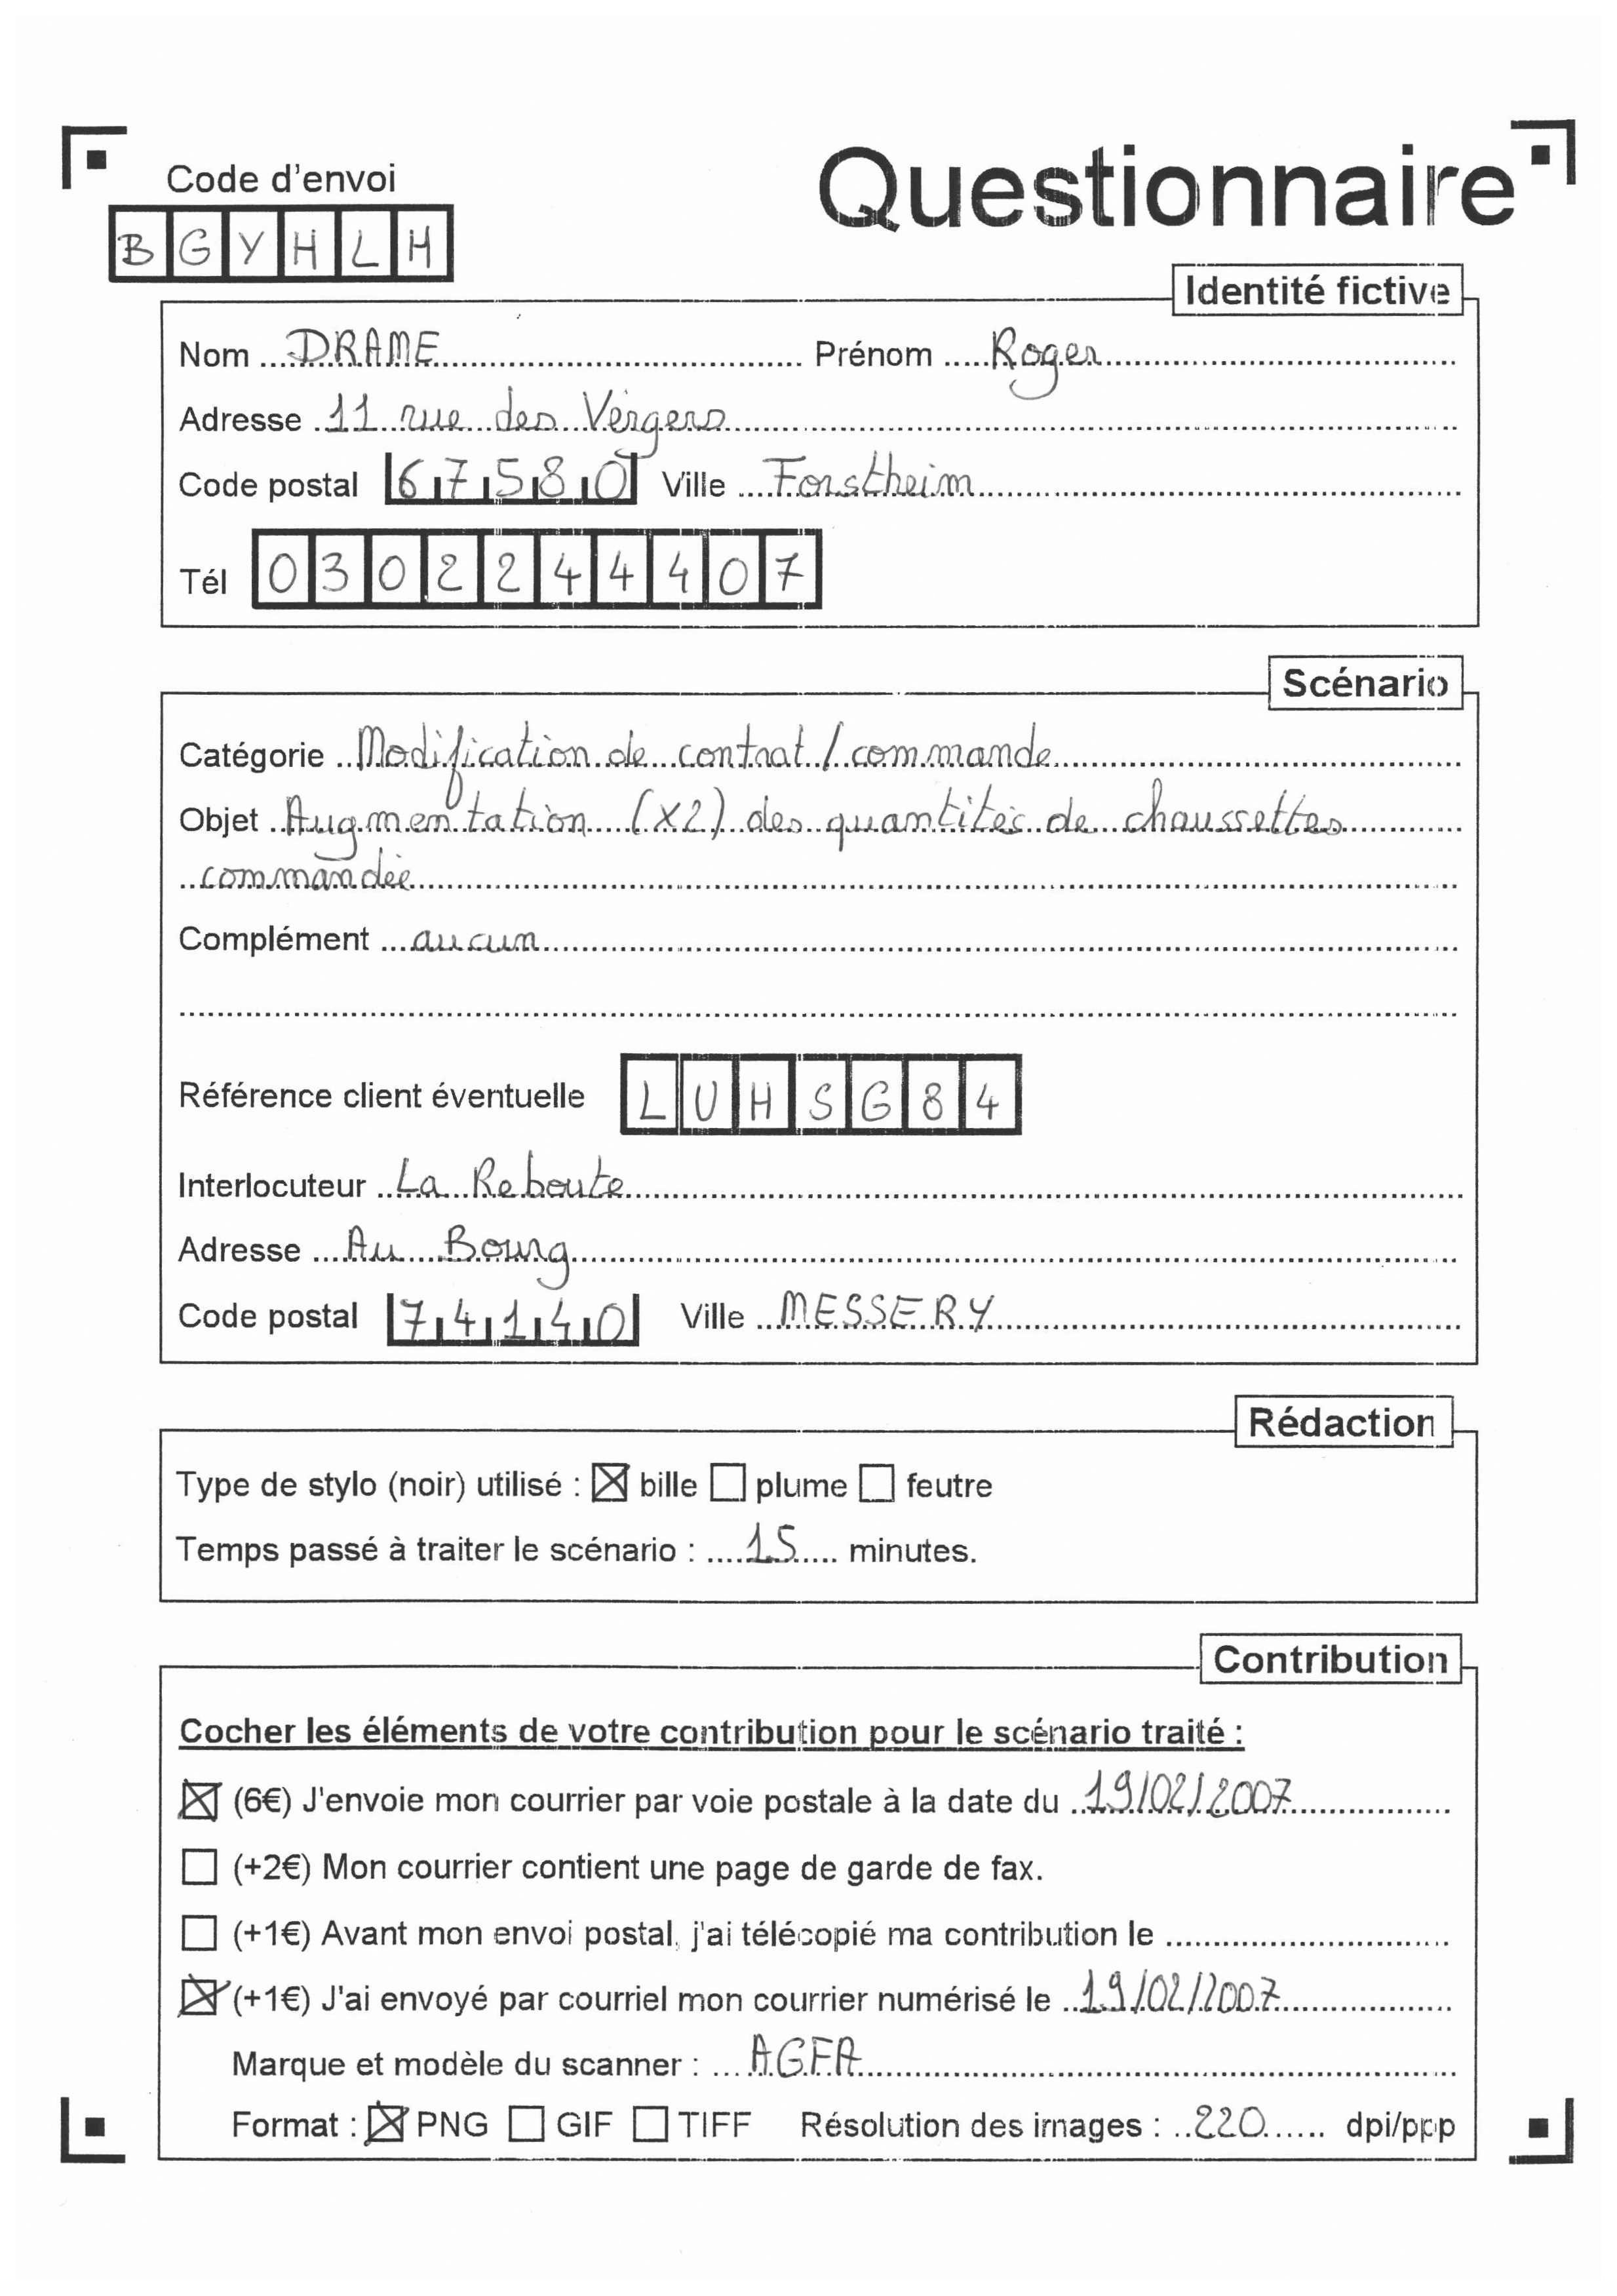 Code d'envoi
Questionnaire
BGYHLH
Identité fictive
Nom DRAME Prénom Roger
Adresse 11 rue des Vergers
Code postal 67580 Ville Forstheim
Tél 0302244407
Scénario
Catégorie Modification de contrat / commande
Objet Augmentation (x2) des quantités de chaussettes
commandée
Complément aucun
Référence client éventuelle LUHSG84
Interlocuteur La Reboute
Adresse Au Bourg
Code postal 74140 Ville MESSERY
Rédaction
Type de stylo (noir) utilisé : ☒ bille ☐ plume ☐ feutre
Temps passé à traiter le scénario : 15 minutes.
Contribution
Cocher les éléments de votre contribution pour le scénario traité :
☒ (6€) J'envoie mon courrier par voie postale à la date du 19/02/2007
☐ (+2€) Mon courrier contient une page de garde de fax.
☐ (+1€) Avant mon envoi postal, j'ai télécopié ma contribution le
☒ (+1€) J'ai envoyé par courriel mon courrier numérisé le 19/02/2007
Marque et modèle du scanner : AGFA
Format : ☒ PNG ☐ GIF ☐ TIFF Résolution des images : 220 dpi/ppp